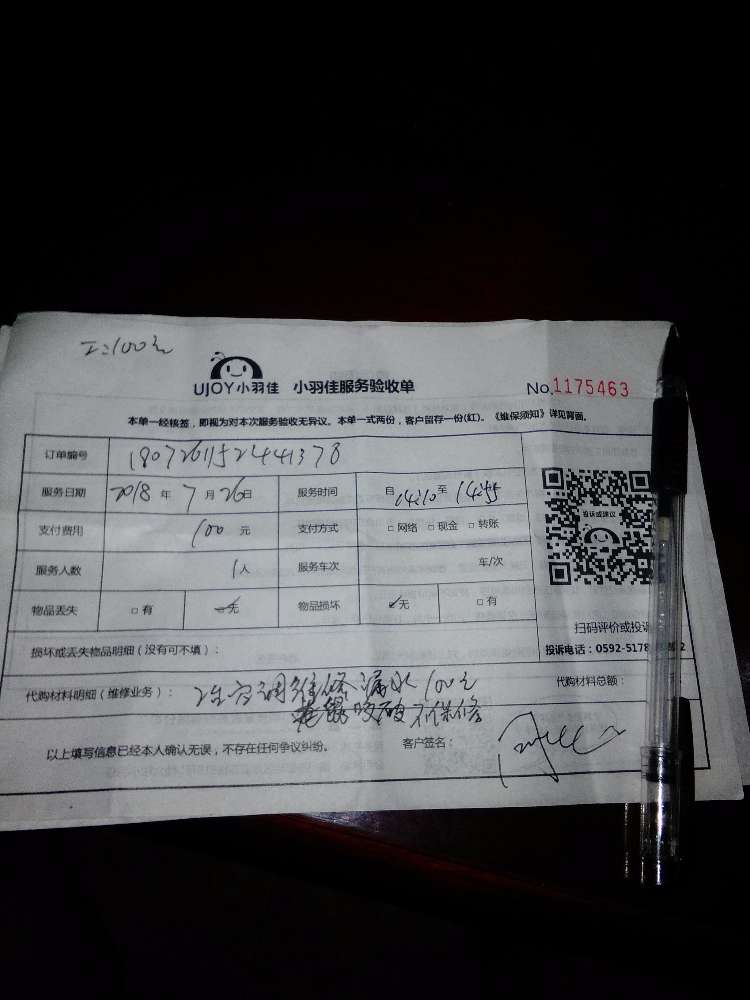 工:100元
UJOY小羽佳 小羽佳服务验收单 No.1175463
本单一经核签，即视为对本次服务验收无异议。本单一式两份，客户留存一份(红)。《维保须知》详见背面。
订单编号 1807261152441378
服务日期 2018 年 7 月 26 日 服务时间 自 14:10 至 14:55
投诉或建议
支付费用 100 元 支付方式 □ 网络 □ 现金 □ 转账
服务人数 1 人 服务车次 车/次
物品丢失 □ 有 ☑ 无 物品损坏 ☑ 无 □ 有
扫码评价或投诉
损坏或丢失物品明细（没有可不填）： 投诉电话：0592-5178
代购材料明细（维修业务）： 空调维修漏水100元 代购材料总额：
老鼠咬破不保修
以上填写信息已经本人确认无误，不存在任何争议纠纷。 客户签名：